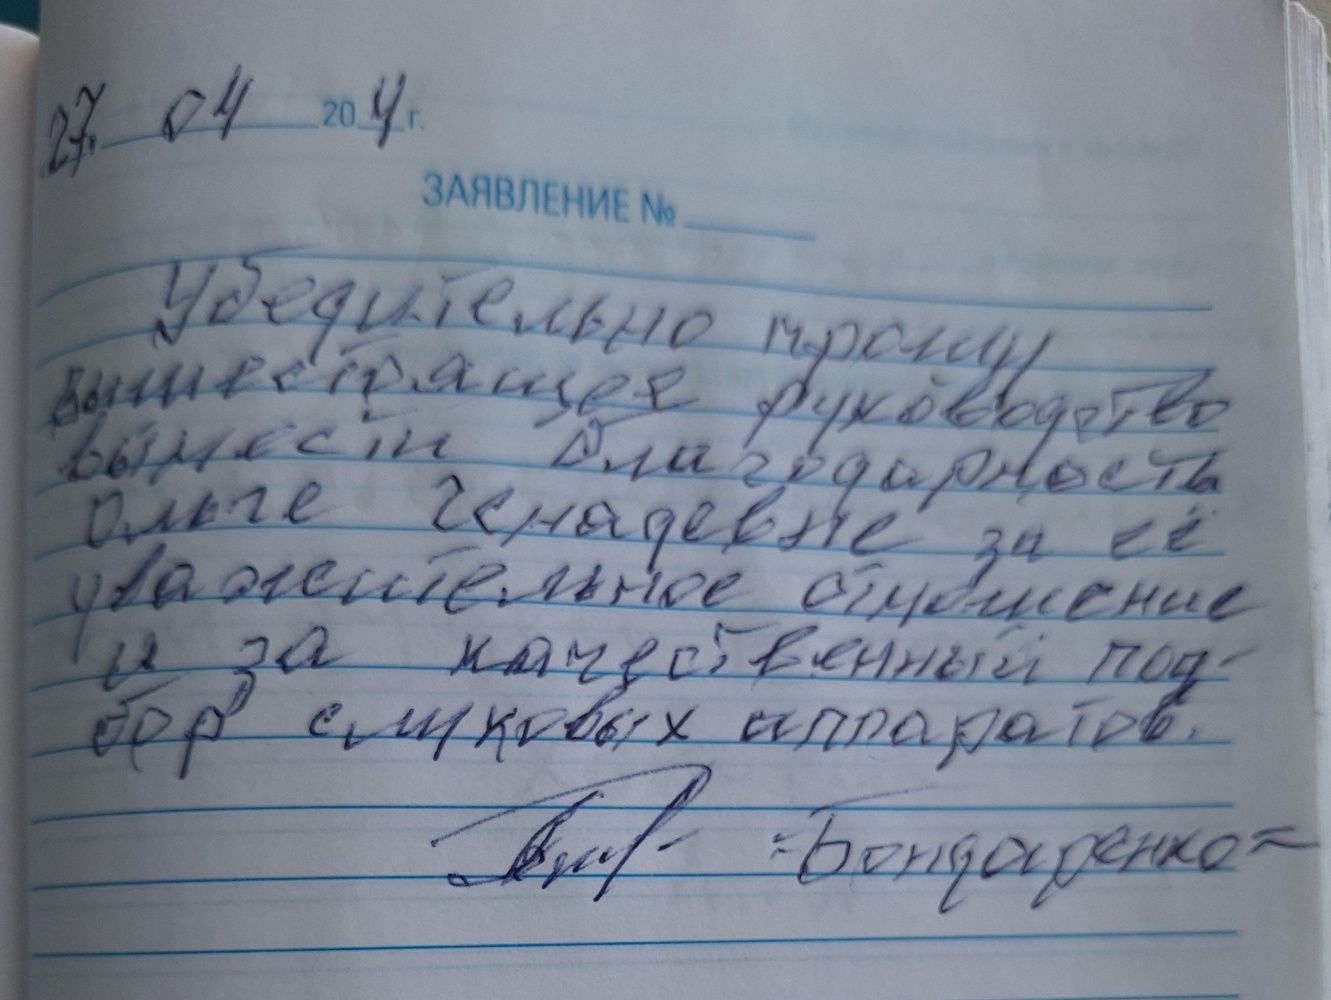 27. 04 20 4 г.
ЗАЯВЛЕНИЕ № ______
Убедительно прошу
вышестоящее руководство
вынести благодарность
Ольге Генадевне за её
уважительное отношение
и за качественный под-
бор слуховых аппаратов.
=Бондаренко=